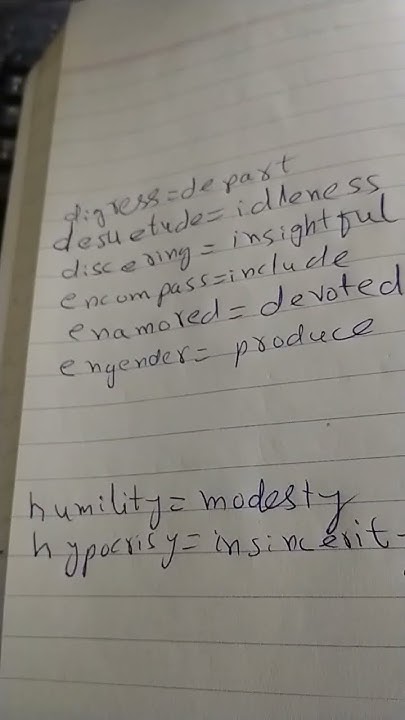 digress=depart
desuetude=idleness
discering=insightful
encompass=include
enamored=devoted
engender=produce
humility=modesty
hypocrisy=insincerit